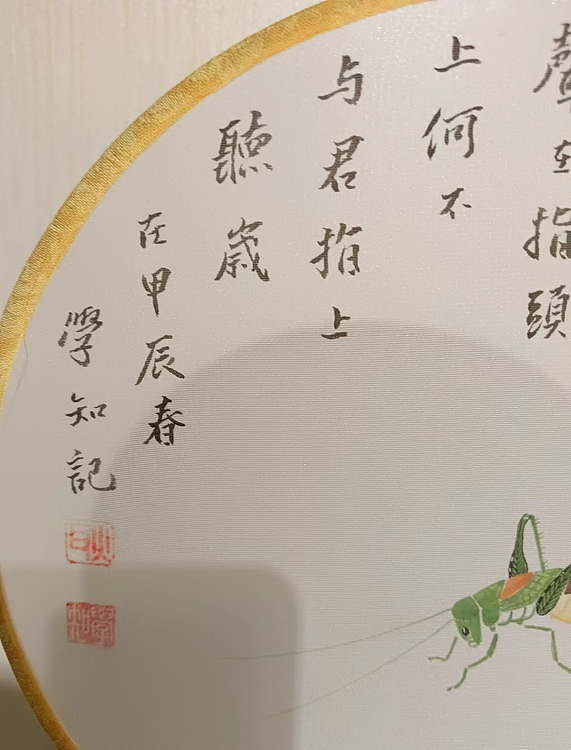 聲在指頭
上何不
与君指上
聽歲
在甲辰春
學知記
學知